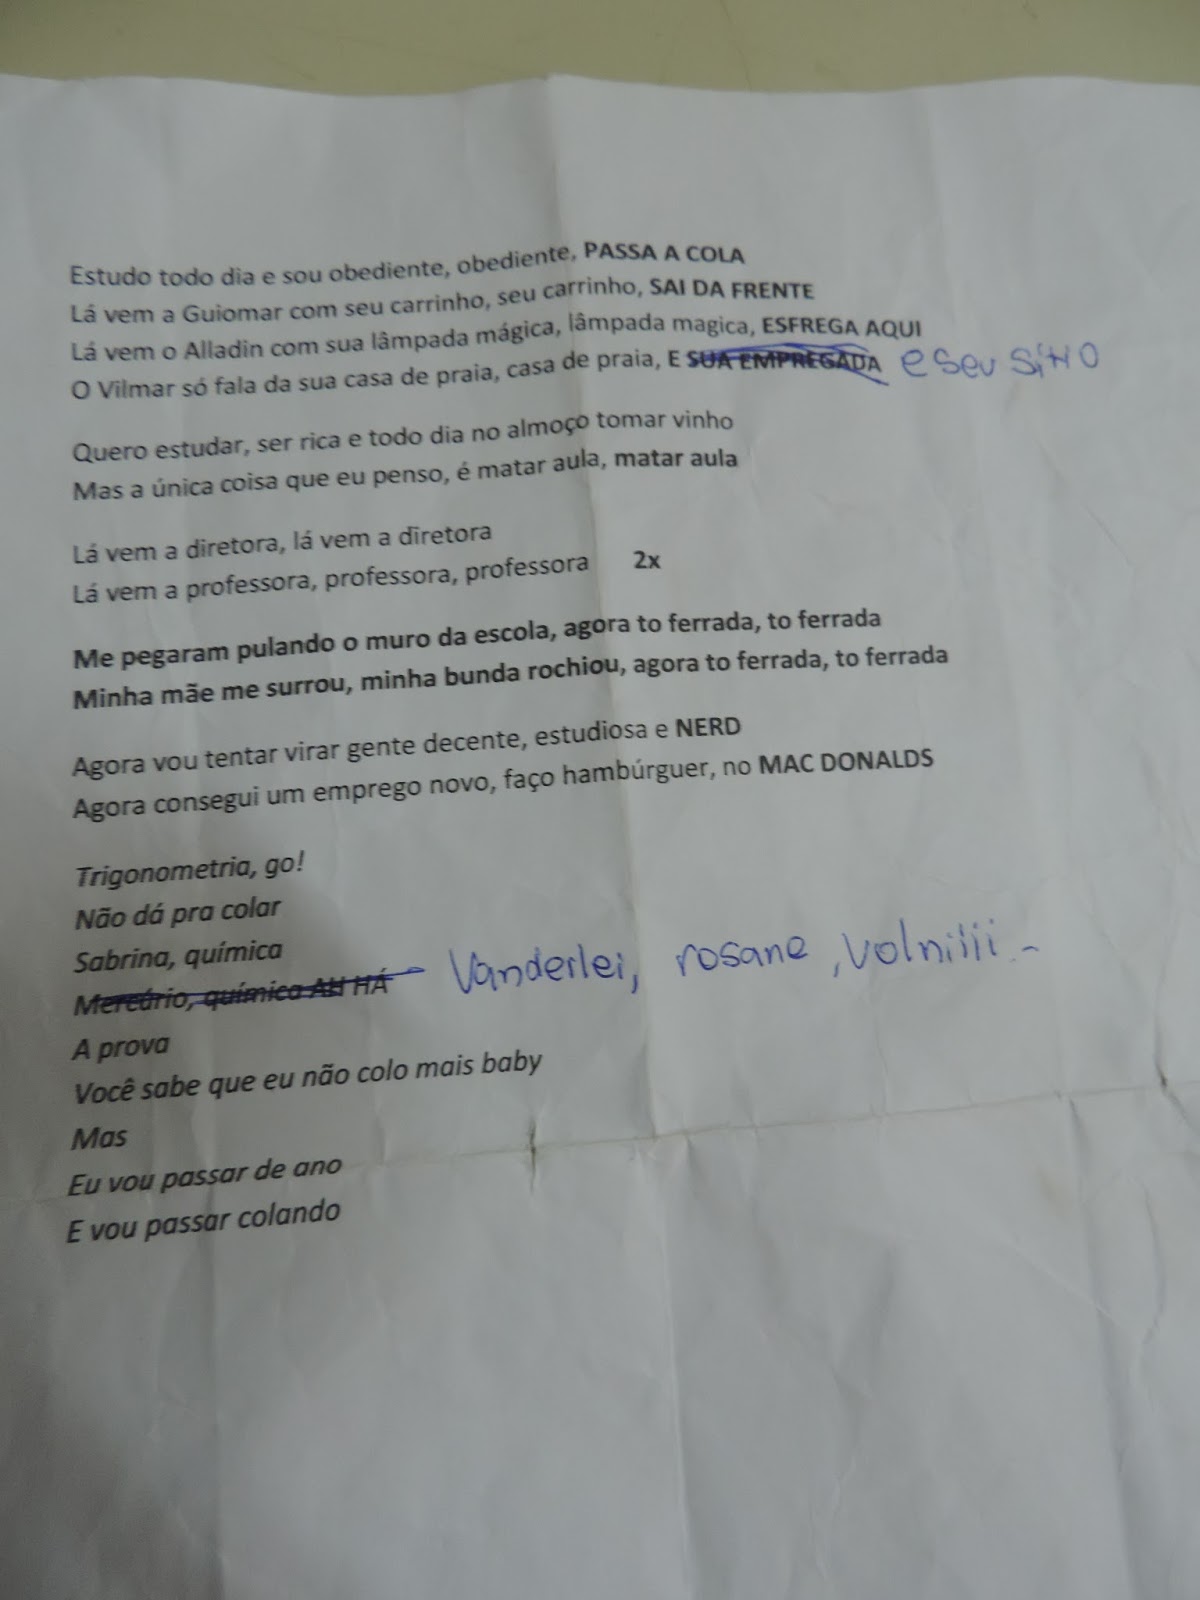 Estudo todo dia e sou obediente, obediente, PASSA A COLA
Lá vem a Guiomar com seu carrinho, seu carrinho, SAI DA FRENTE
Lá vem o Alladin com sua lâmpada mágica, lâmpada magica, ESFREGA AQUI
O Vilmar só fala da sua casa de praia, casa de praia, E SUA EMPREGADA e seu sitio
Quero estudar, ser rica e todo dia no almoço tomar vinho
Mas a única coisa que eu penso, é matar aula, matar aula
Lá vem a diretora, lá vem a diretora
Lá vem a professora, professora, professora 2x
Me pegaram pulando o muro da escola, agora to ferrada, to ferrada
Minha mãe me surrou, minha bunda rochiou, agora to ferrada, to ferrada
Agora vou tentar virar gente decente, estudiosa e NERD
Agora consegui um emprego novo, faço hambúrguer, no MAC DONALDS
Trigonometria, go!
Não dá pra colar
Sabrina, química
Mercário, química AH HÁ - Vanderlei, rosane, volniiii -
A prova
Você sabe que eu não colo mais baby
Mas
Eu vou passar de ano
E vou passar colando